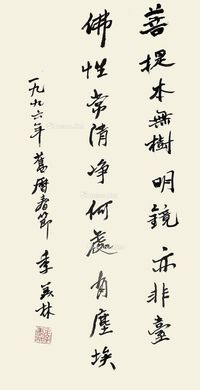 菩提本無樹明鏡亦非臺
佛性常清净何處有塵埃
一九九六年舊曆春節 季羡林